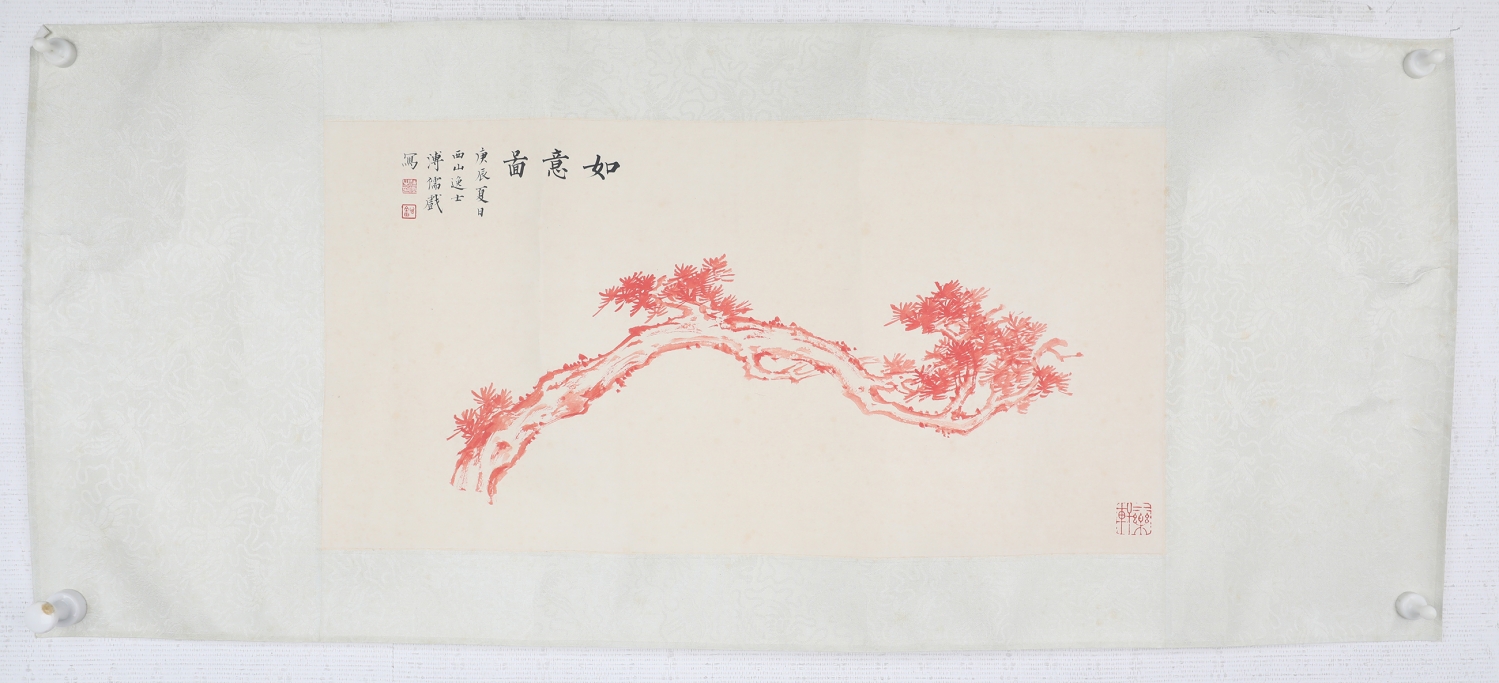 如意啚
庚辰夏日
西山逸士
溥儒戲
寫